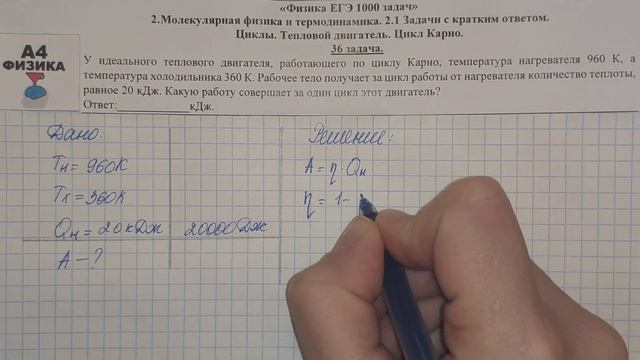 «Физика ЕГЭ 1000 задач»
2.Молекулярная физика и термодинамика. 2.1 Задачи с кратким ответом.
Циклы. Тепловой двигатель. Цикл Карно.
36 задача.
А4
ФИЗИКА
У идеального теплового двигателя, работающего по циклу Карно, температура нагревателя 960 К, а
температура холодильника 360 К. Рабочее тело получает за цикл работы от нагревателя количество теплоты,
равное 20 кДж. Какую работу совершает за один цикл этот двигатель?
Ответ:____________кДж.
Дано:
Tн = 960К
Tх = 360К
Qн = 20кДж 20000Дж
A - ?
Решение:
A = η · Qн
η = 1 -